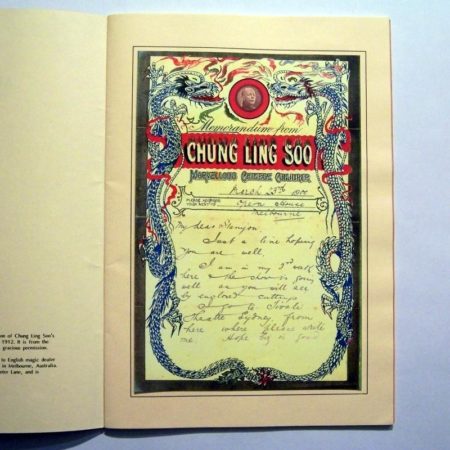 on of Chung Ling Soo's
1912. It is from the
gracious permission.
to English magic dealer
in Melbourne, Australia.
Lane, and is
Memorandum from
CHUNG LING SOO
MARVELLOUS CHINESE CONJURER
March 23rd
PLEASE ADDRESS
YOUR NEXT TO Opera House
Melbourne
My dear Stanyon,
Just a line hoping
you are well.
I am in my 3rd week
here & the show is going
well as you will see
by enclosed cuttings
I go to Tivoli
Theatre Sydney from
here where please write
me. Hope biz is good